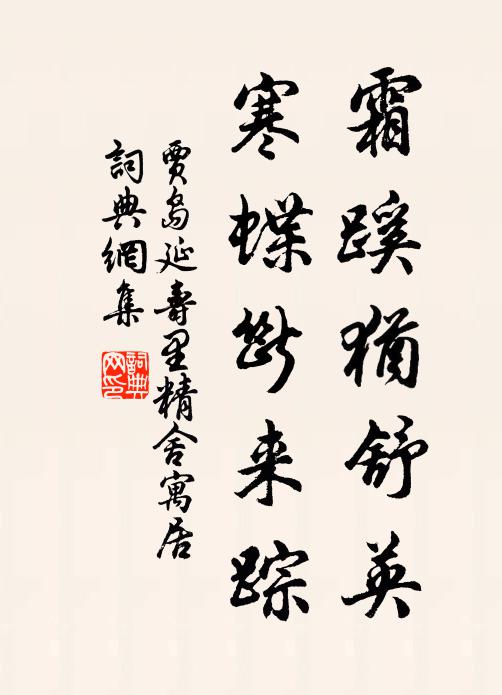 霜蹊犹舒英
寒蝶断来踪
賈島延壽里精舍寓居
詞典網集
詞典网印